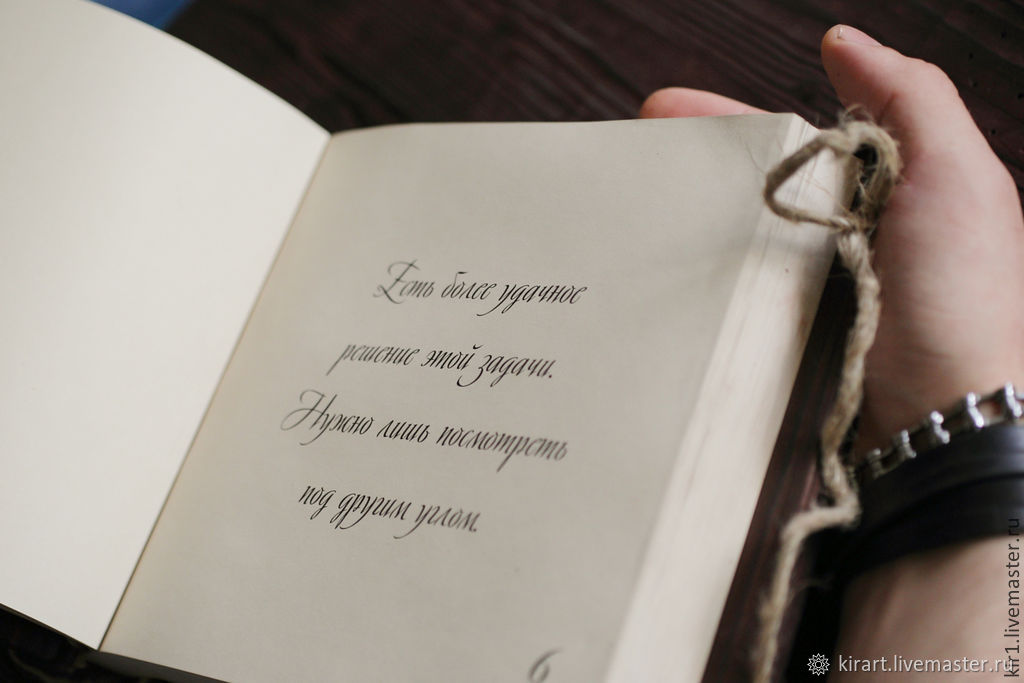 Есть более удачное
решение этой задачи.
Нужно лишь посмотреть
под другим углом.
6
kirart.livemaster.ru
kir1.livemaster.ru